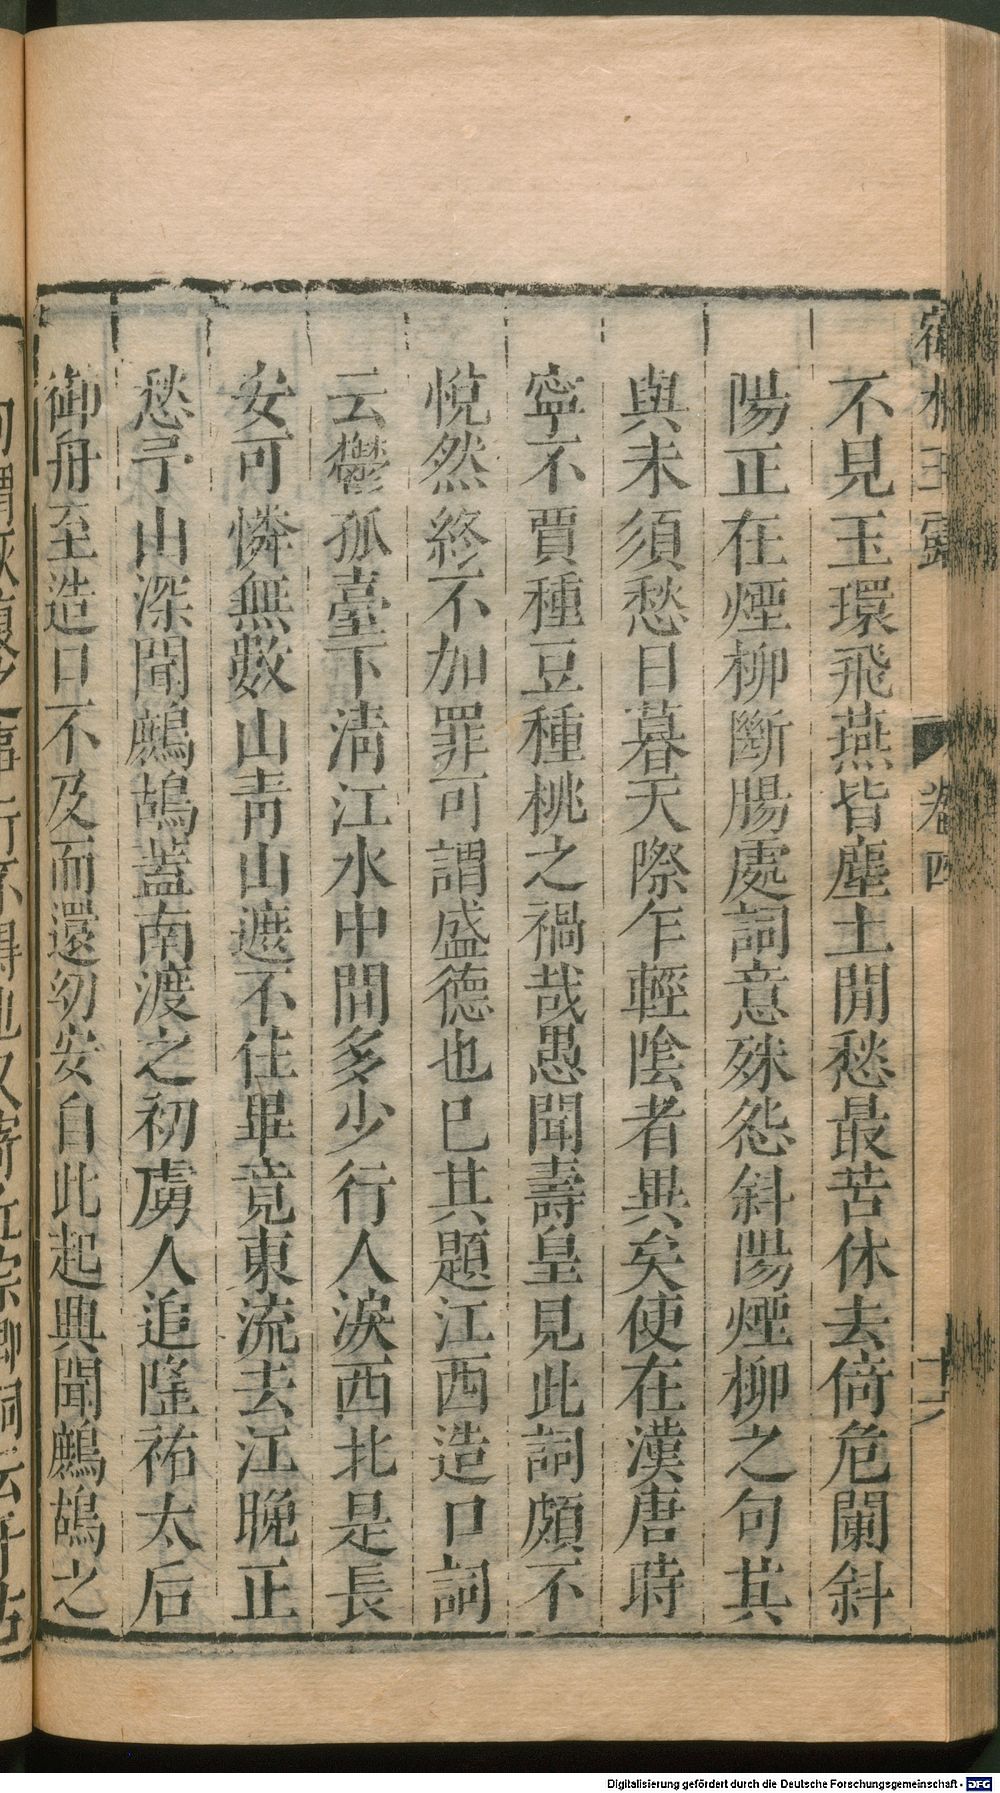 不見玉環飛燕皆塵土閒愁最苦休去倚危闌斜
陽正在煙柳斷腸處詞意殊怨斜陽煙柳之句其
與未須愁日暮天際乍輕陰者異矣使在漢唐時
寧不賈種豆種桃之禍哉愚聞壽皇見此詞頗不
悅然終不加罪可謂盛德也已其題江西造口詞
云鬱孤臺下清江水中間多少行人淚西北是長
安可憐無數山青山遮不住畢竟東流去江晚正
愁予山深聞鷓鴣蓋南渡之初虜人追隆祐太后
御舟至造口不及而還幼安自此起興聞鷓鴣之
卷四
十六
Digitalisierung gefördert durch die Deutsche Forschungsgemeinschaft - DFG